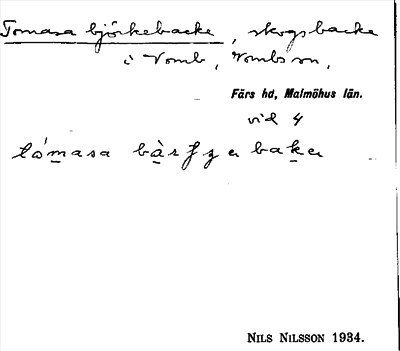 Tomasa björkebacke, skogsbacke
i Vomb, Vombs sn,
Färs hd, Malmöhus län.
vid 4
NILS NILSSON 1934.